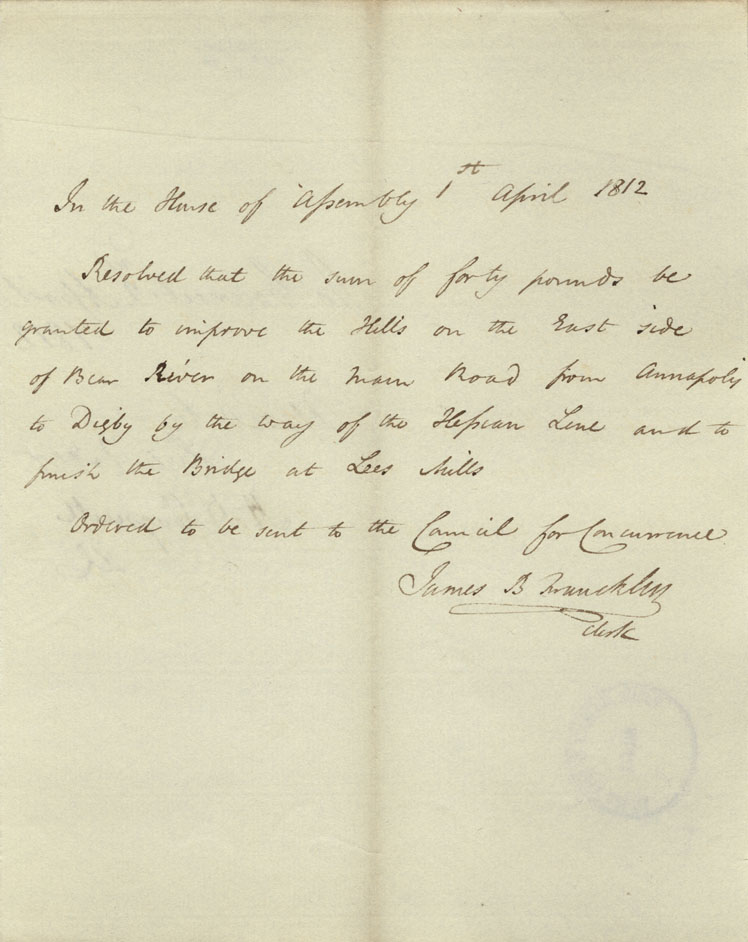 In the House of Assembly 1st April 1812
Resolved that the sum of forty pounds be
granted to improve the Hills on the East side
of Bear River on the Main Road from Annapolis
to Digby by the way of the Hessian Line and to
finish the Bridge at Lees Mills
Ordered to be sent to the Council for Concurrence
James B Francklin
Clerk